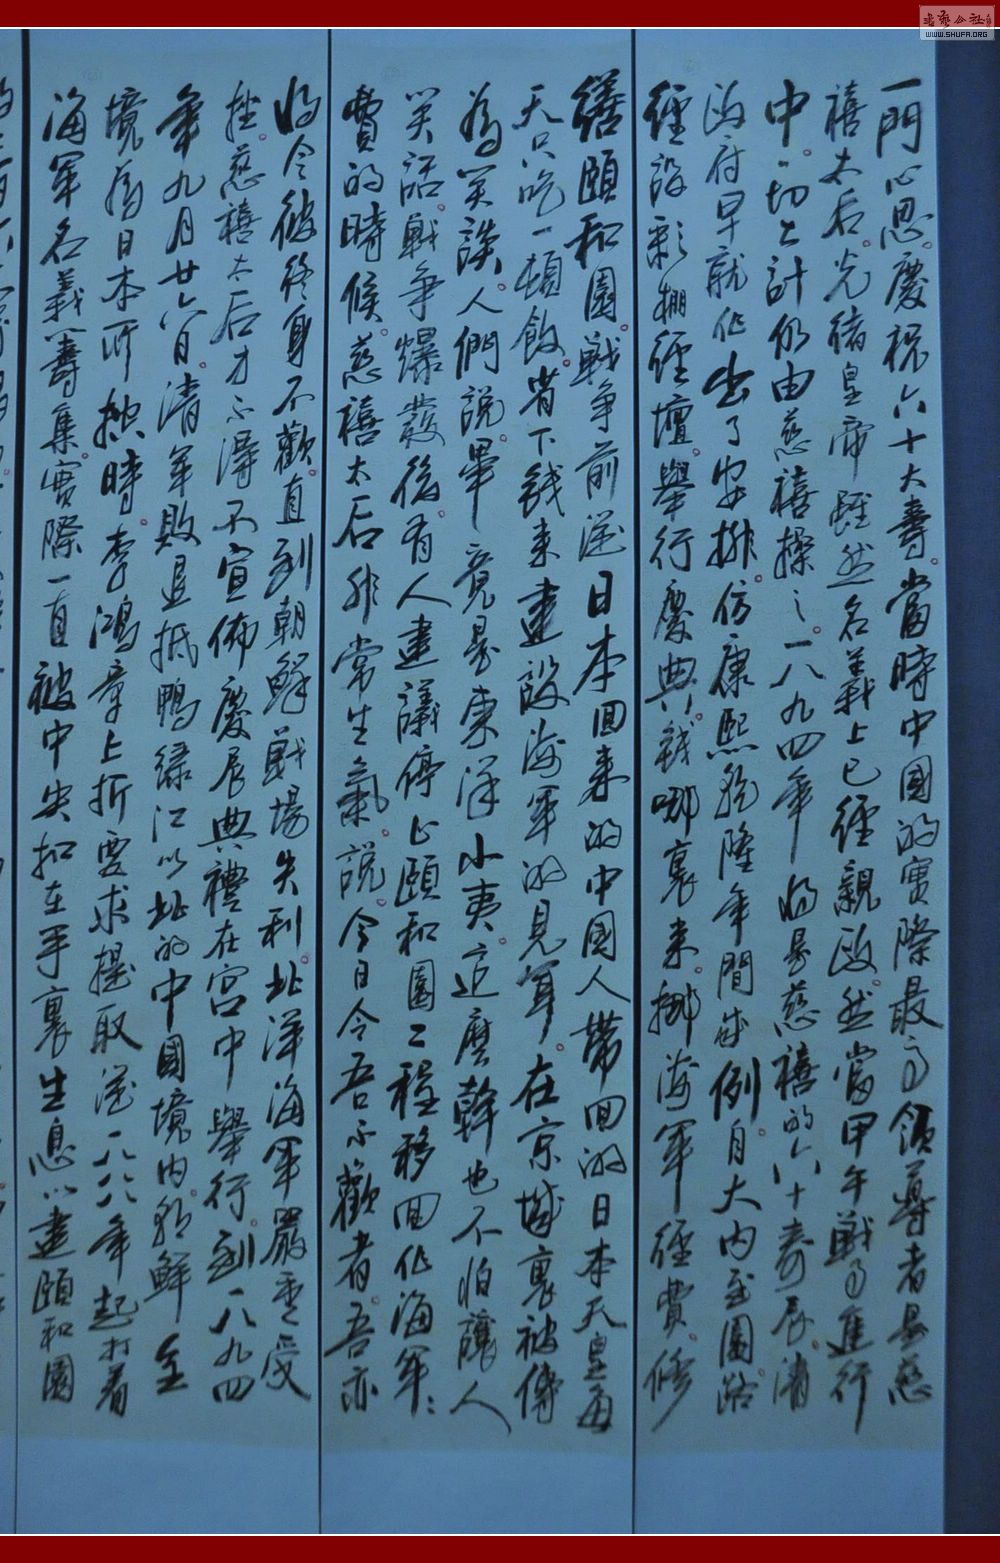 一門心思慶祝六十大壽當時中國的實際最高領導者是慈
禧太后光緒皇帝雖然名義上已經親政然當甲午戰事進行
中一切大計仍由慈禧操之一八九四年將是慈禧的六十壽辰清
政府早就作出了安排仿康熙乾隆年間成例自大内至園路
經設彩棚經壇舉行慶典錢哪裏來挪海軍經費修
繕頤和園戰爭前從日本回來的中國人帶回的日本天皇每
天只吃一頓飯省下錢來建設海軍的見聞在京城裏被傳
為笑談人們說畢竟是東洋小夷這麼幹也不怕讓人
笑話戰爭爆發後有人建議停止頤和園工程移回作海軍
費的時候慈禧太后非常生氣說今日令吾不歡者吾亦
將令彼終身不歡直到朝鮮戰場失利北洋海軍嚴重受
挫慈禧太后才不得不宣佈慶辰典禮在宮中舉行到一八九四
年九月廿六日清軍敗退抵鴨緑江以北的中國境内朝鮮全
境為日本所控時李鴻章上折要求提取從一八八六年起打着
海軍名義籌集實際一直被中央扣在手裏生息以建頤和園
書藝公社
WWW.SHUFA.ORG